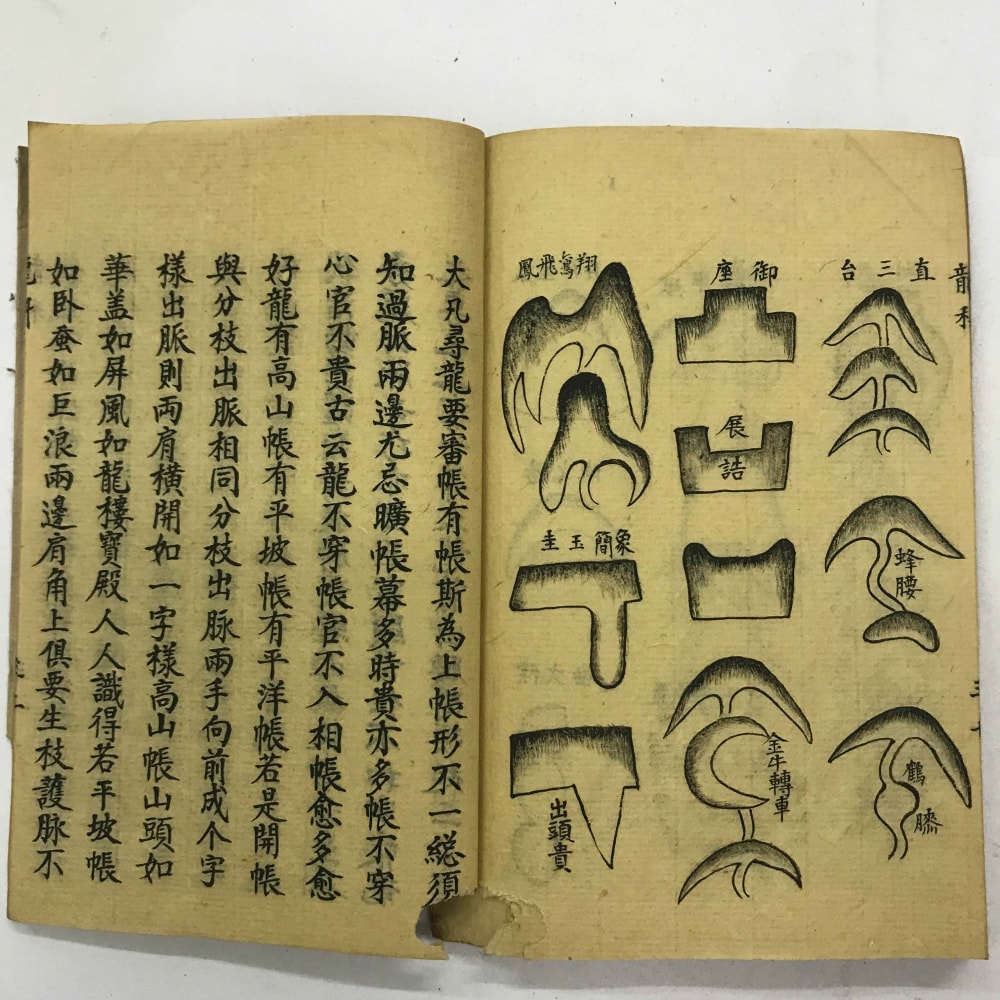 龍
直三台
蜂腰
鶴膝
御座
展誥
金牛轉車
翔鸞飛鳳
象簡玉圭
出頭貴
大凡尋龍要審帳有帳斯為上帳形不一総須
知過脈兩邊尤忌曠帳幕多時貴亦多帳不穿
心官不貴古云龍不穿帳官不入相帳愈多愈
好龍有高山帳有平坡帳有平洋帳若是開帳
與分枝出脈相同分枝出脉兩手向前成个字
樣出脈則両肩橫開如一字樣高山帳山頭如
華盖如屏風如龍樓寶殿人人識得若平坡帳
如卧蚕如巨浪兩邊肩角上俱要生枝護脈不